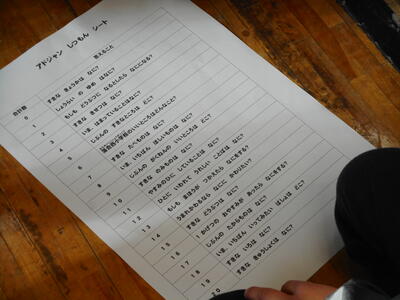 アドジャン しつもん シート
合計数 答えること
0 すきな きょうかは なに?
1 しょうらい の ゆめ はなに?
2 もしも どうぶつに なるとしたら なにになる?
3 すきな きせつは なに?
4 いま、はまっていることはなに?
5 じぶんの すきなところは どこ?
6 小学校のいいところはどんなこと?
7 すきな たべものは なに?
8 いま、いちばん ほしいものは なに?
9 じぶんの がくねんの いいところは どこ?
10 すきな のみものは なに?
11 やすみのひに していることは なに?
12 ひとに いわれて うれしい ことばは なに?
13 もしも まほうが つかえたら なにをする?
14 うまれかわるなら なにに かわりたい?
15 すきな どうぶつは なに?
16 1かげつの おやすみが あったら なにをする?
17 じぶんの たからものは なに?
18 いま、いちばん いってみたい ばしょは どこ?
19 すきな いろは なに?
20 すきな きゅうしょくは なに?